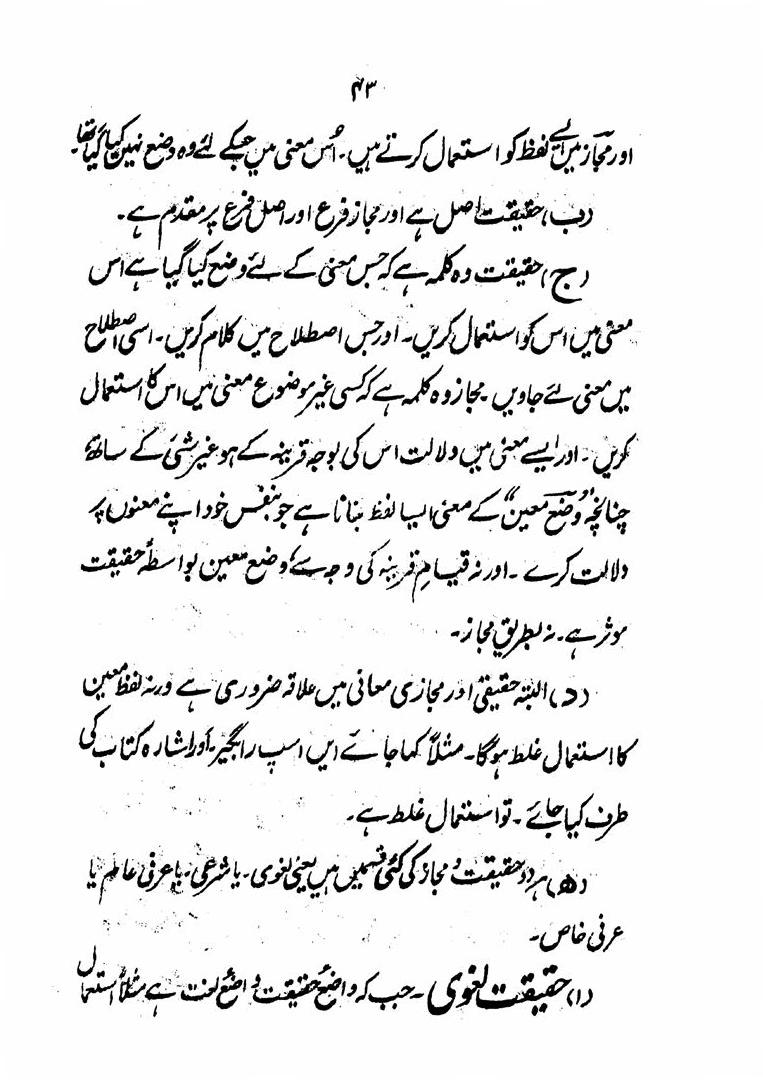 ۴۳
اور مجاز میں ایسے لفظ کو استعمال کرتے ہیں۔ اُس معنی میں جسکے لئے وہ وضع نہیں کیا گیا تھا۔
(ب) حقیقت اصل ہے اور مجاز فرع اور اصل فرع پر مقدم ہے۔
(ج) حقیقت وہ کلمہ ہے کہ جس معنی کے لئے وضع کیا گیا ہے اس
معنی میں اس کو استعمال کریں۔ اور جس اصطلاح میں کلام کریں۔ اسی اصطلاح
میں معنی لئے جاویں۔ مجاز وہ کلمہ ہے کہ کسی غیر موضوع معنی میں اس کا استعمال
کریں۔ اور ایسے معنی میں دلالت اس کی بوجہ قرینہ کے ہو غیر شئ کے ساتھ
چنانچہ "وضع معین" کے معنی ایسا لفظ بنانا ہے جو بنفس خود اپنے معنوں پر
دلالت کرے۔ اور نہ قیامِ قرینہ کی وجہ سے، وضع معین بواسطہٴ حقیقت
موثر ہے۔ نہ بطریقِ مجاز۔
(د) البتہ حقیقی اور مجازی معانی میں علاقہ ضروری ہے ورنہ لفظ معین
کا استعمال غلط ہوگا۔ مثلاً کہا جائے ایں اسپ را بگیر۔ اور اشارہ کتاب کی
طرف کیا جائے۔ تو استعمال غلط ہے۔
(ھ) ہر دو حقیقت و مجاز کی کئی قسمیں ہیں یعنی لغوی۔ یا شرعی۔ یا عرفی عام یا
عرفی خاص۔
(۱) حقیقت لغوی۔ جب کہ واضع حقیقت واضع لغت ہے مثلاً استعمال